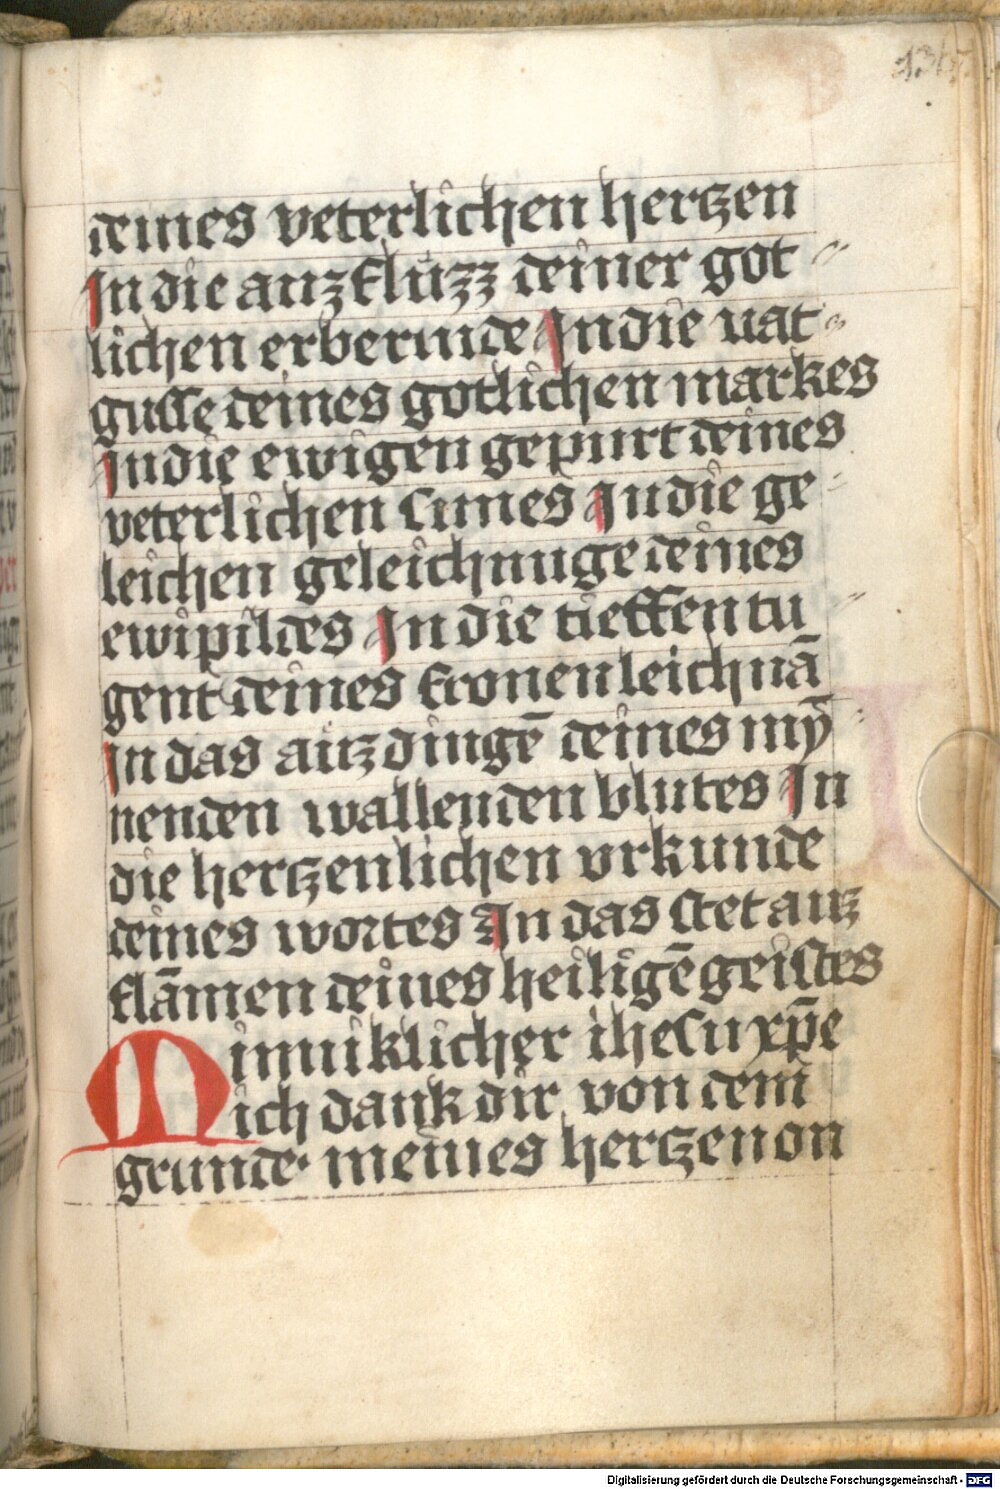 deines veterlichen hertzen
In die auzfluzz deiner got
lichen erbermde In die uat
gusse deines gotlichen markes
In die ewigen gepurt deines
veterlichen sunes In die ge
leichen geleichnuge deines
ewipildes In die tieffen tu
gent deines fronen leichnā
In das auzdingē deines mȳ
nenden wallenden blutes In
die hertzenlichen vrkunde
deines wortes In das stet auz
flāmen deines heiligē geistes
Minniklicher ihesu xp̄e
ich dank dir von dem
grunde meines hertzen on
Digitalisierung gefördert durch die Deutsche Forschungsgemeinschaft - DFG